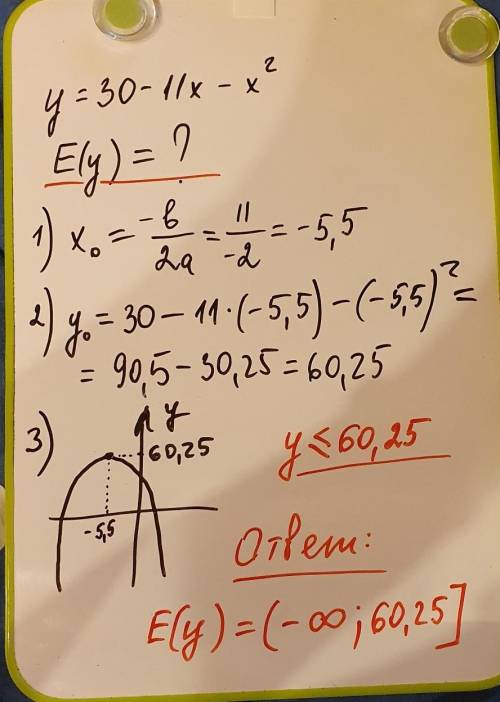 y = 30 - 11x - x²
E(y) = ?
1) x₀ = -b/2a = 11/-2 = -5,5
2) y₀ = 30 - 11·(-5,5) - (-5,5)² =
= 90,5 - 30,25 = 60,25
3)
y
60,25
-5,5
y ≤ 60,25
Ответ:
E(y) = (-∞; 60,25]